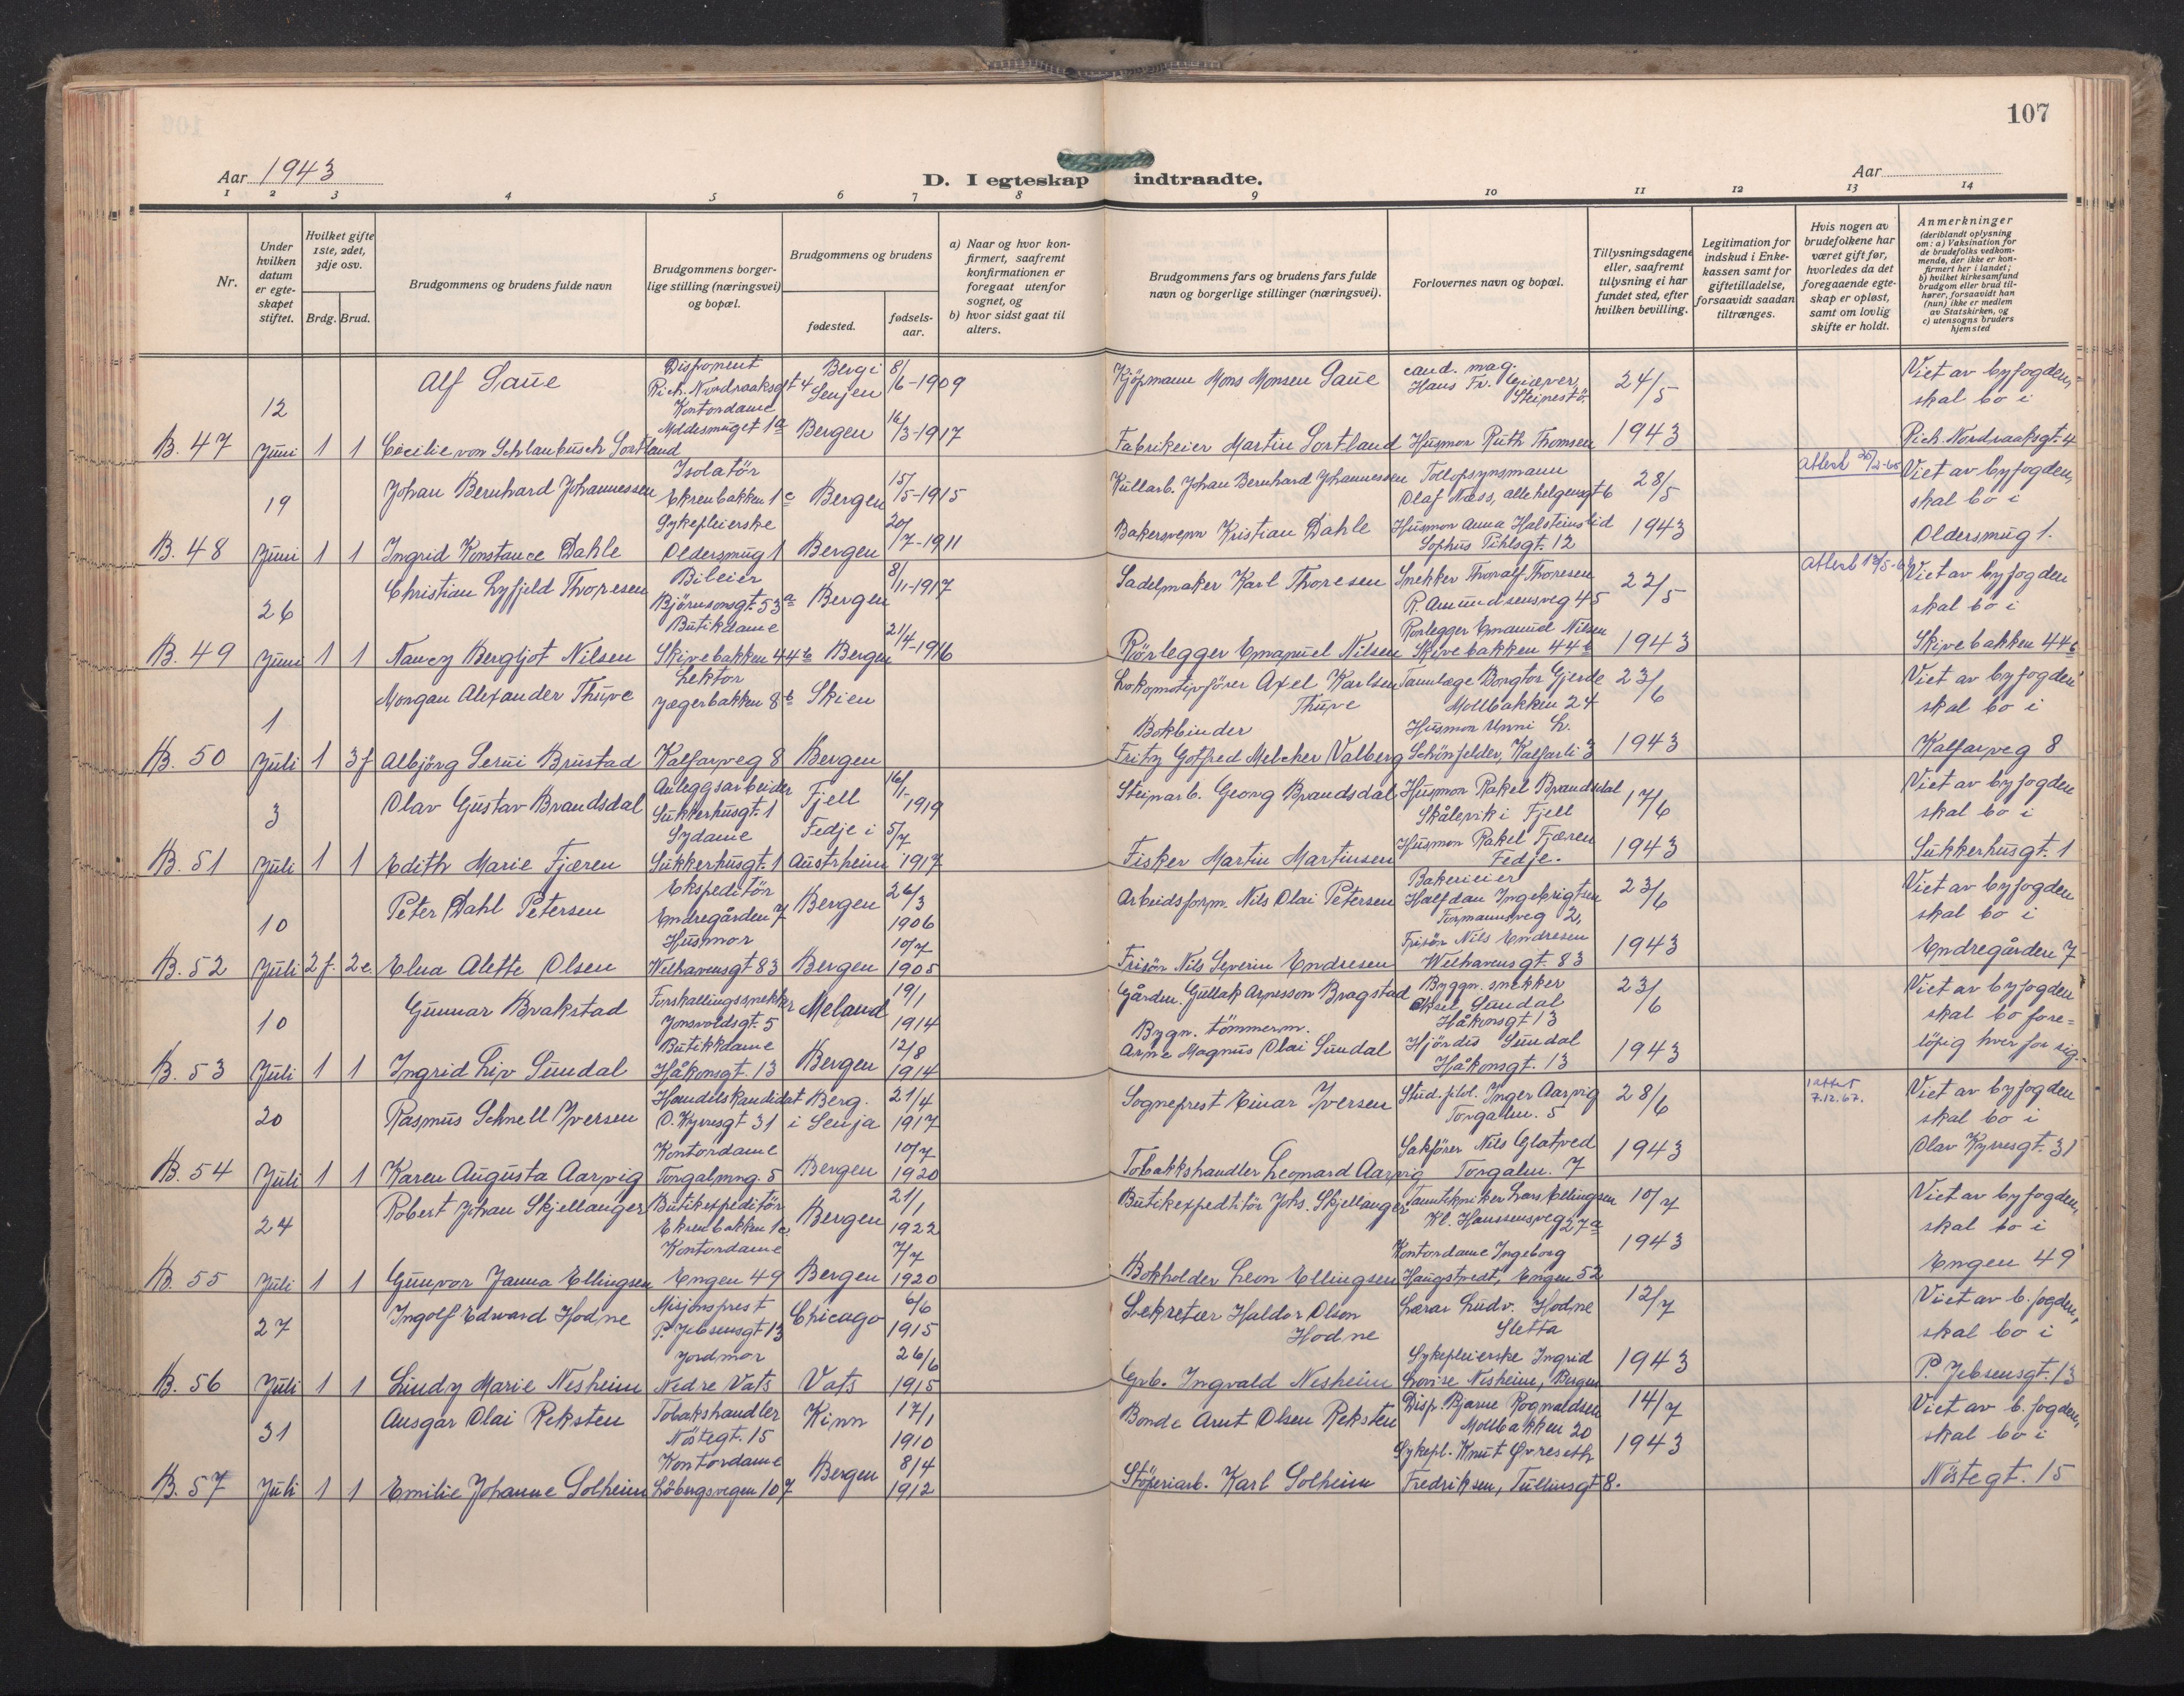 107
Aar 1943
D. I egteskap indtraadte.
Aar
1 2 3 4 5 6 7 8 9 10 11 12 13 14
Nr.
Under hvilken datum er egte-skapet stiftet.
Hvilket gifte 1ste, 2det, 3dje osv.
Brdg. Brud.
Brudgommens og brudens fulde navn
Brudgommens borger-lige stilling (næringsvei) og bopæl.
Brudgommens og brudens
fødested.
fødsels-aar.
a) Naar og hvor kon-firmert, saafremt konfirmationen er foregaat utenfor sognet, og
b) hvor sidst gaat til alters.
Brudgommens fars og brudens fars fulde navn og borgerlige stillinger (næringsvei).
Forlovernes navn og bopæl.
Tillysningsdagene eller, saafremt tillysning ei har fundet sted, efter hvilken bevilling.
Legitimation for indskud i Enke-kassen samt for giftetilladelse, forsaavidt saadan tiltrænges.
Hvis nogen av brudefolkene har været gift før, hvorledes da det foregaaende egte-skap er opløst, samt om lovlig skifte er holdt.
Anmerkninger
(deriblandt oplysning om: a) Vaksination for de brudefolks vedkom-mende, der ikke er kon-firmert her i landet; b) hvilket kirkesamfund brudgom eller brud til-hører, forsaavidt han (hun) ikke er medlem av Statskirken, og c) utensogns bruders hjemsted
B. 47 12 Juni 1 1
Alf Saue
Disponent Rich. Nordraaksgt 4
Berg i Senjen 8/6-1909
Kjøpmann Mons Monsen Saue
cand. mag. Hans Fr. Giæver, Steinestø.
24/5 1943
Viet av byfogden, skal bo i Rich. Nordraaksgt. 4
Cecilie von Schlanbusch Sortland
Kontordame Moldesmuget 1a
Bergen 16/3-1917
Fabrikeier Martin Sortland
Husmor Ruth Thomsen
B. 48 19 Juni 1 1
Johan Bernhard Johannessen
Isolatör Ekrenbakken 1c
Bergen 15/5-1915
Kullarb. Johan Bernhard Johannessen
Tollopsynsmann Olaf Næss, allehelgensgt 6
28/5 1943
Viet av byfogden, skal bo i Oldersmug 1.
Ingrid Konstance Dahle
Sykepleierske Oldersmug 1
Bergen 20/7-1911
Bakersvenn Kristian Dahle
Husmor Anna Halsteinslid Sophus Pihlsgt. 12
B. 49 26 Juni 1 1
Christian Lyfjeld Thoresen
Bileier Bjørnsonsgt. 53a
Bergen 8/11-1917
Sadelmaker Karl Thoresen
Snekker Thoralf Thoresen R. Amundsensveg 45
22/5 1943
Viet av byfogden skal bo i Skivebakken 44b
Nancy Bergljot Nilsen
Butikdame Skivebakken 44b
Bergen 21/4-1916
Rørlegger Emanuel Nilsen
Rørlegger Emanuel Nilsen Skivebakken 44b
B. 50 1 Juli 1 3f
Morgan Alexander Thuve
Lektor Jægerbakken 8b
Skien
Lokomotivfører Axel Karlsen Thuve
Tannlæge Borgtor Gjerde Mollbakken 24
23/6 1943
Viet av byfogden skal bo i Kalfarveg 8
Albjörg Serui Brustad
Kalfarveg 8
Bergen
Bokbinder Fritz Gotfred Melcher Valberg
Husmor Unni L. Schönfelder, Kalfarli 3
B. 51 3 Juli 1 1
Olav Gustav Brandsdal
Anleggsarbeider Sukkerhusgt. 1
Fjell 16/1-1919
Steinarb. Georg Brandsdal
Husmor Rakel Brandsdal Skålevik i Fjell
17/6 1943
Viet av byfogden skal bo i Sukkerhusgt. 1
Edith Marie Fjæren
Sydame Sukkerhusgt. 1
Fedje i Austrheim 5/7 1917
Fisker Martin Martinsen
Husmor Rakel Fjæren Fedje.
B. 52 10 Juli 2f. 2e.
Peter Dahl Petersen
Ekspeditör Endregården 7
Bergen 26/3 1906
Arbeidsform. Nils Olai Petersen
Bakerieier Halfdan Ingebrigtsen Formannsveg 2,
23/6 1943
Viet av byfogden skal bo i Endregården 7
Elna Alette Olsen
Husmor Welhavensgt 83
Bergen 10/7 1905
Frisør Nils Severin Endresen
Frisör Nils Endresen Welhavensgt. 83
B. 53 10 Juli 1 1
Gunnar Brakstad
Forskallingssnekker Jonsvoldsgt. 5
Meland 19/1 1914
Gårdbr. Gullak Arnesson Bragstad
Byggn. snekker Aksel Sundal Håkonsgt 13
23/6 1943
Viet av byfogden skal bo fore=löpig hver for sig.
Ingrid Liv Sundal
Butikkdame Håkonsgt. 13
Bergen 12/8 1914
Bygn. tömmerm. Arne Magnus Olai Sundal
Hjördis Sundal Håkonsgt. 13
B. 54 20 Juli 1 1
Rasmus Schnell Iversen
Handelskandidat O. Kyrresgt 31
Berg. i Senja 21/4 1917
Sogneprest Einar Iversen
Stud. phil. Inger Aarvig Torgalm. 5
28/6 1943
1 attest 7.12.67.
Viet av byfogden skal bo i Olav Kyrresgt. 31
Karen Augusta Aarvig
Kontordame Torgalmng. 5
Bergen 10/7 1920
Tobakkshandler Leonard Aarvig
Sakfører Nils Glatved Torgalm. 7
B. 55 24 Juli 1 1
Robert Johan Skjellanger
Butikexpeditör Ekrenbakken 1c
Bergen 21/1 1922
Butikexpeditör Johs. Skjellanger
Tanntekniker Lars Ellingsen Kl. Hanssensveg 27a
10/7 1943
Viet av byfogden, skal bo i Engen 49
Gunvor Janna Ellingsen
Kontordame Engen 49
Bergen 7/7 1920
Bokholder Leon Ellingsen
Kontordame Ingeborg Haugstvedt, Engen 52
B. 56 27 Juli 1 1
Ingolf Edward Hodne
Misjonsprest P. Jebsensgt 13
Chicago 6/6 1915
Sekretær Haldor Olson Hodne
Lærar Ludv. Hodne Sletta
12/7 1943
Viet av b. fogden, skal bo i P. Jebsensgt. 13
Lindy Marie Nesheim
Jordmor Nedre Vats
Vats 26/6 1915
Grb. Ingvald Nesheim
Sykepleierske Ingrid Lovise Nesheim, Bergen
B. 57 31 Juli 1 1
Ansgar Olai Reksten
Tobakshandler Nöstegt. 15
Kinn 17/1 1910
Bonde Arnt Olsen Reksten
Disp. Bjarne Rognaldsen Mollbakken 20
14/7 1943
Viet av b. fogden, skal bo i Nöstegt. 15
Emilie Johanne Solheim
Kontordame Löbergsvegen 107
Bergen 8/4 1912
Stöperiarb. Karl Solheim
Sykepl. Knut Øvreseth Fredriksen, Tullinsgt 8.